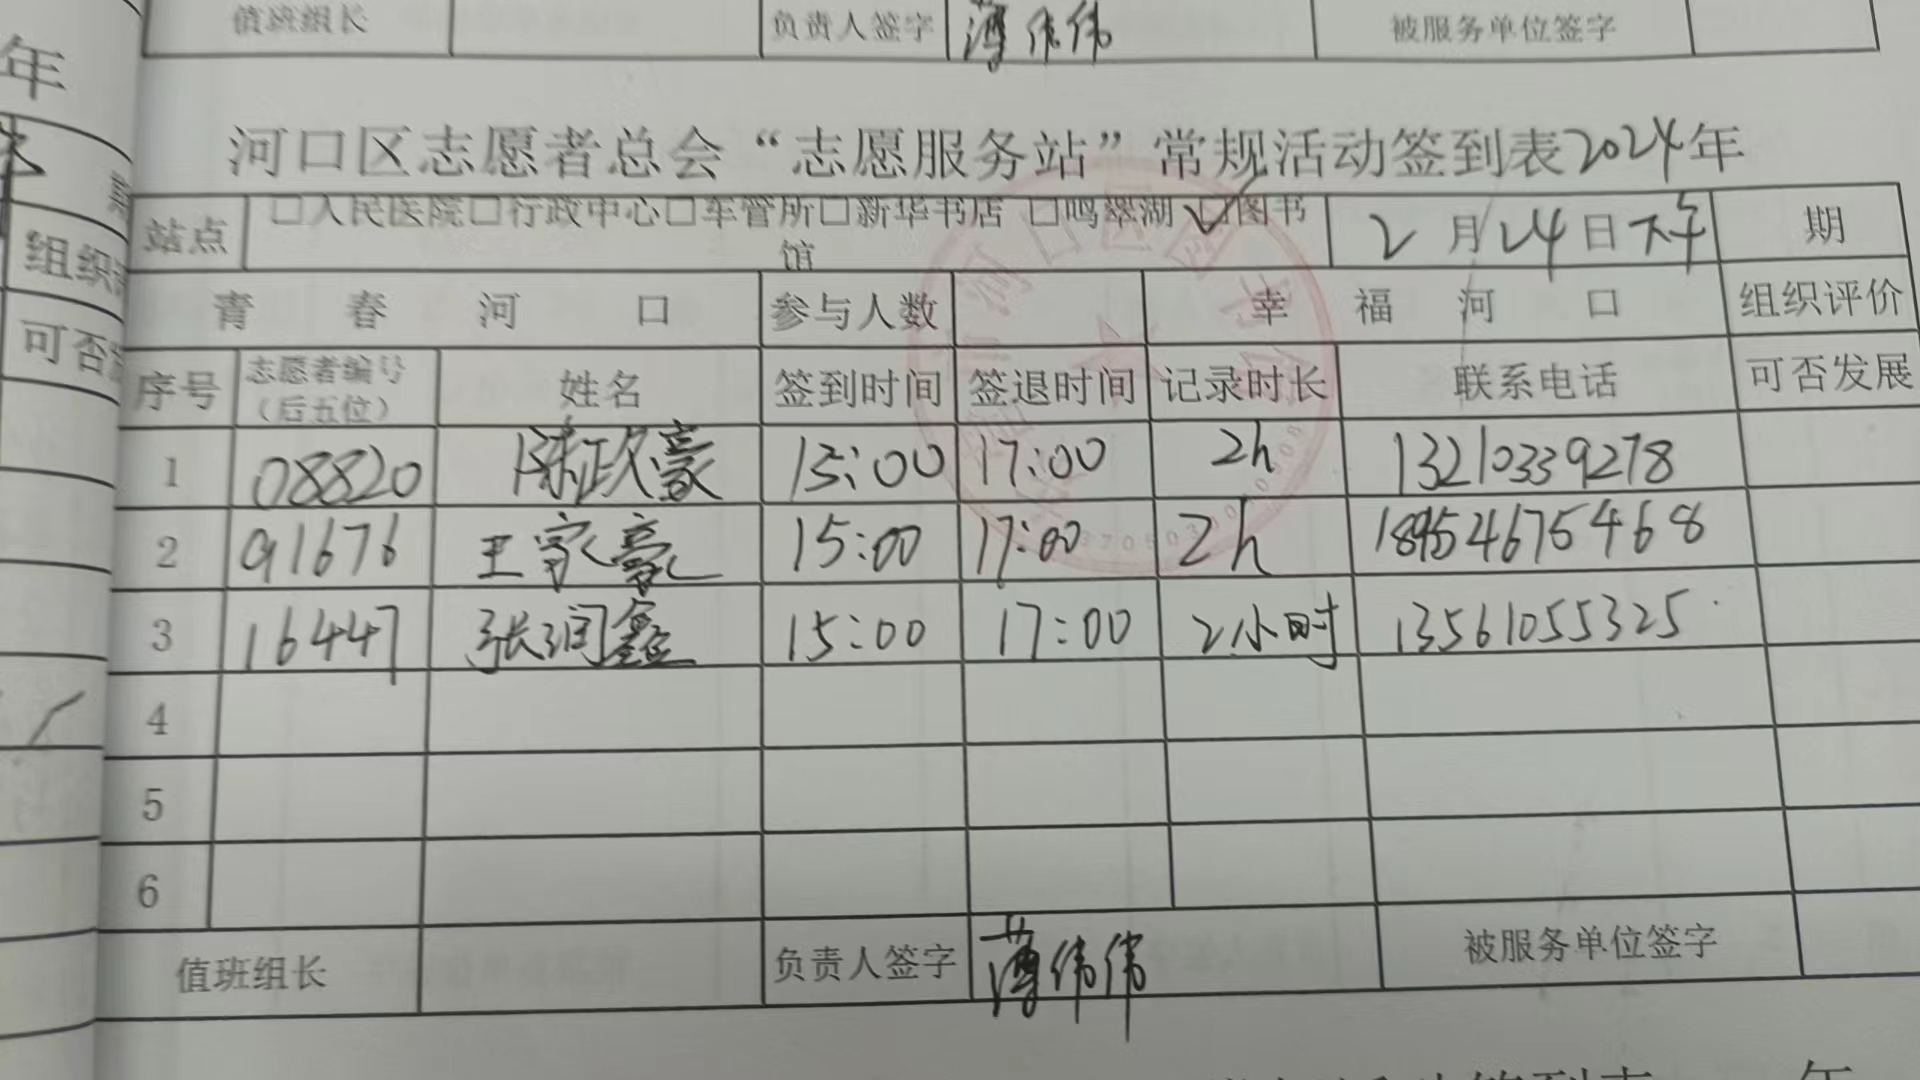 值班组长 负责人签字 薄伟伟 被服务单位签字
年
河口区志愿者总会“志愿服务站”常规活动签到表2024年
站点 □人民医院□行政中心□车管所□新华书店 □鸣翠湖☑图书馆 2月24日下午 期
青春河口 参与人数 幸福河口 组织评价
序号 志愿者编号（后五位） 姓名 签到时间 签退时间 记录时长 联系电话 可否发展
1 08820 陈政豪 15:00 17:00 2h 13210339278
2 91676 王家豪 15:00 17:00 2h 18954675468
3 16447 张润鑫 15:00 17:00 2小时 13561055325
4
5
6
值班组长 负责人签字 薄伟伟 被服务单位签字
组织
可否
年